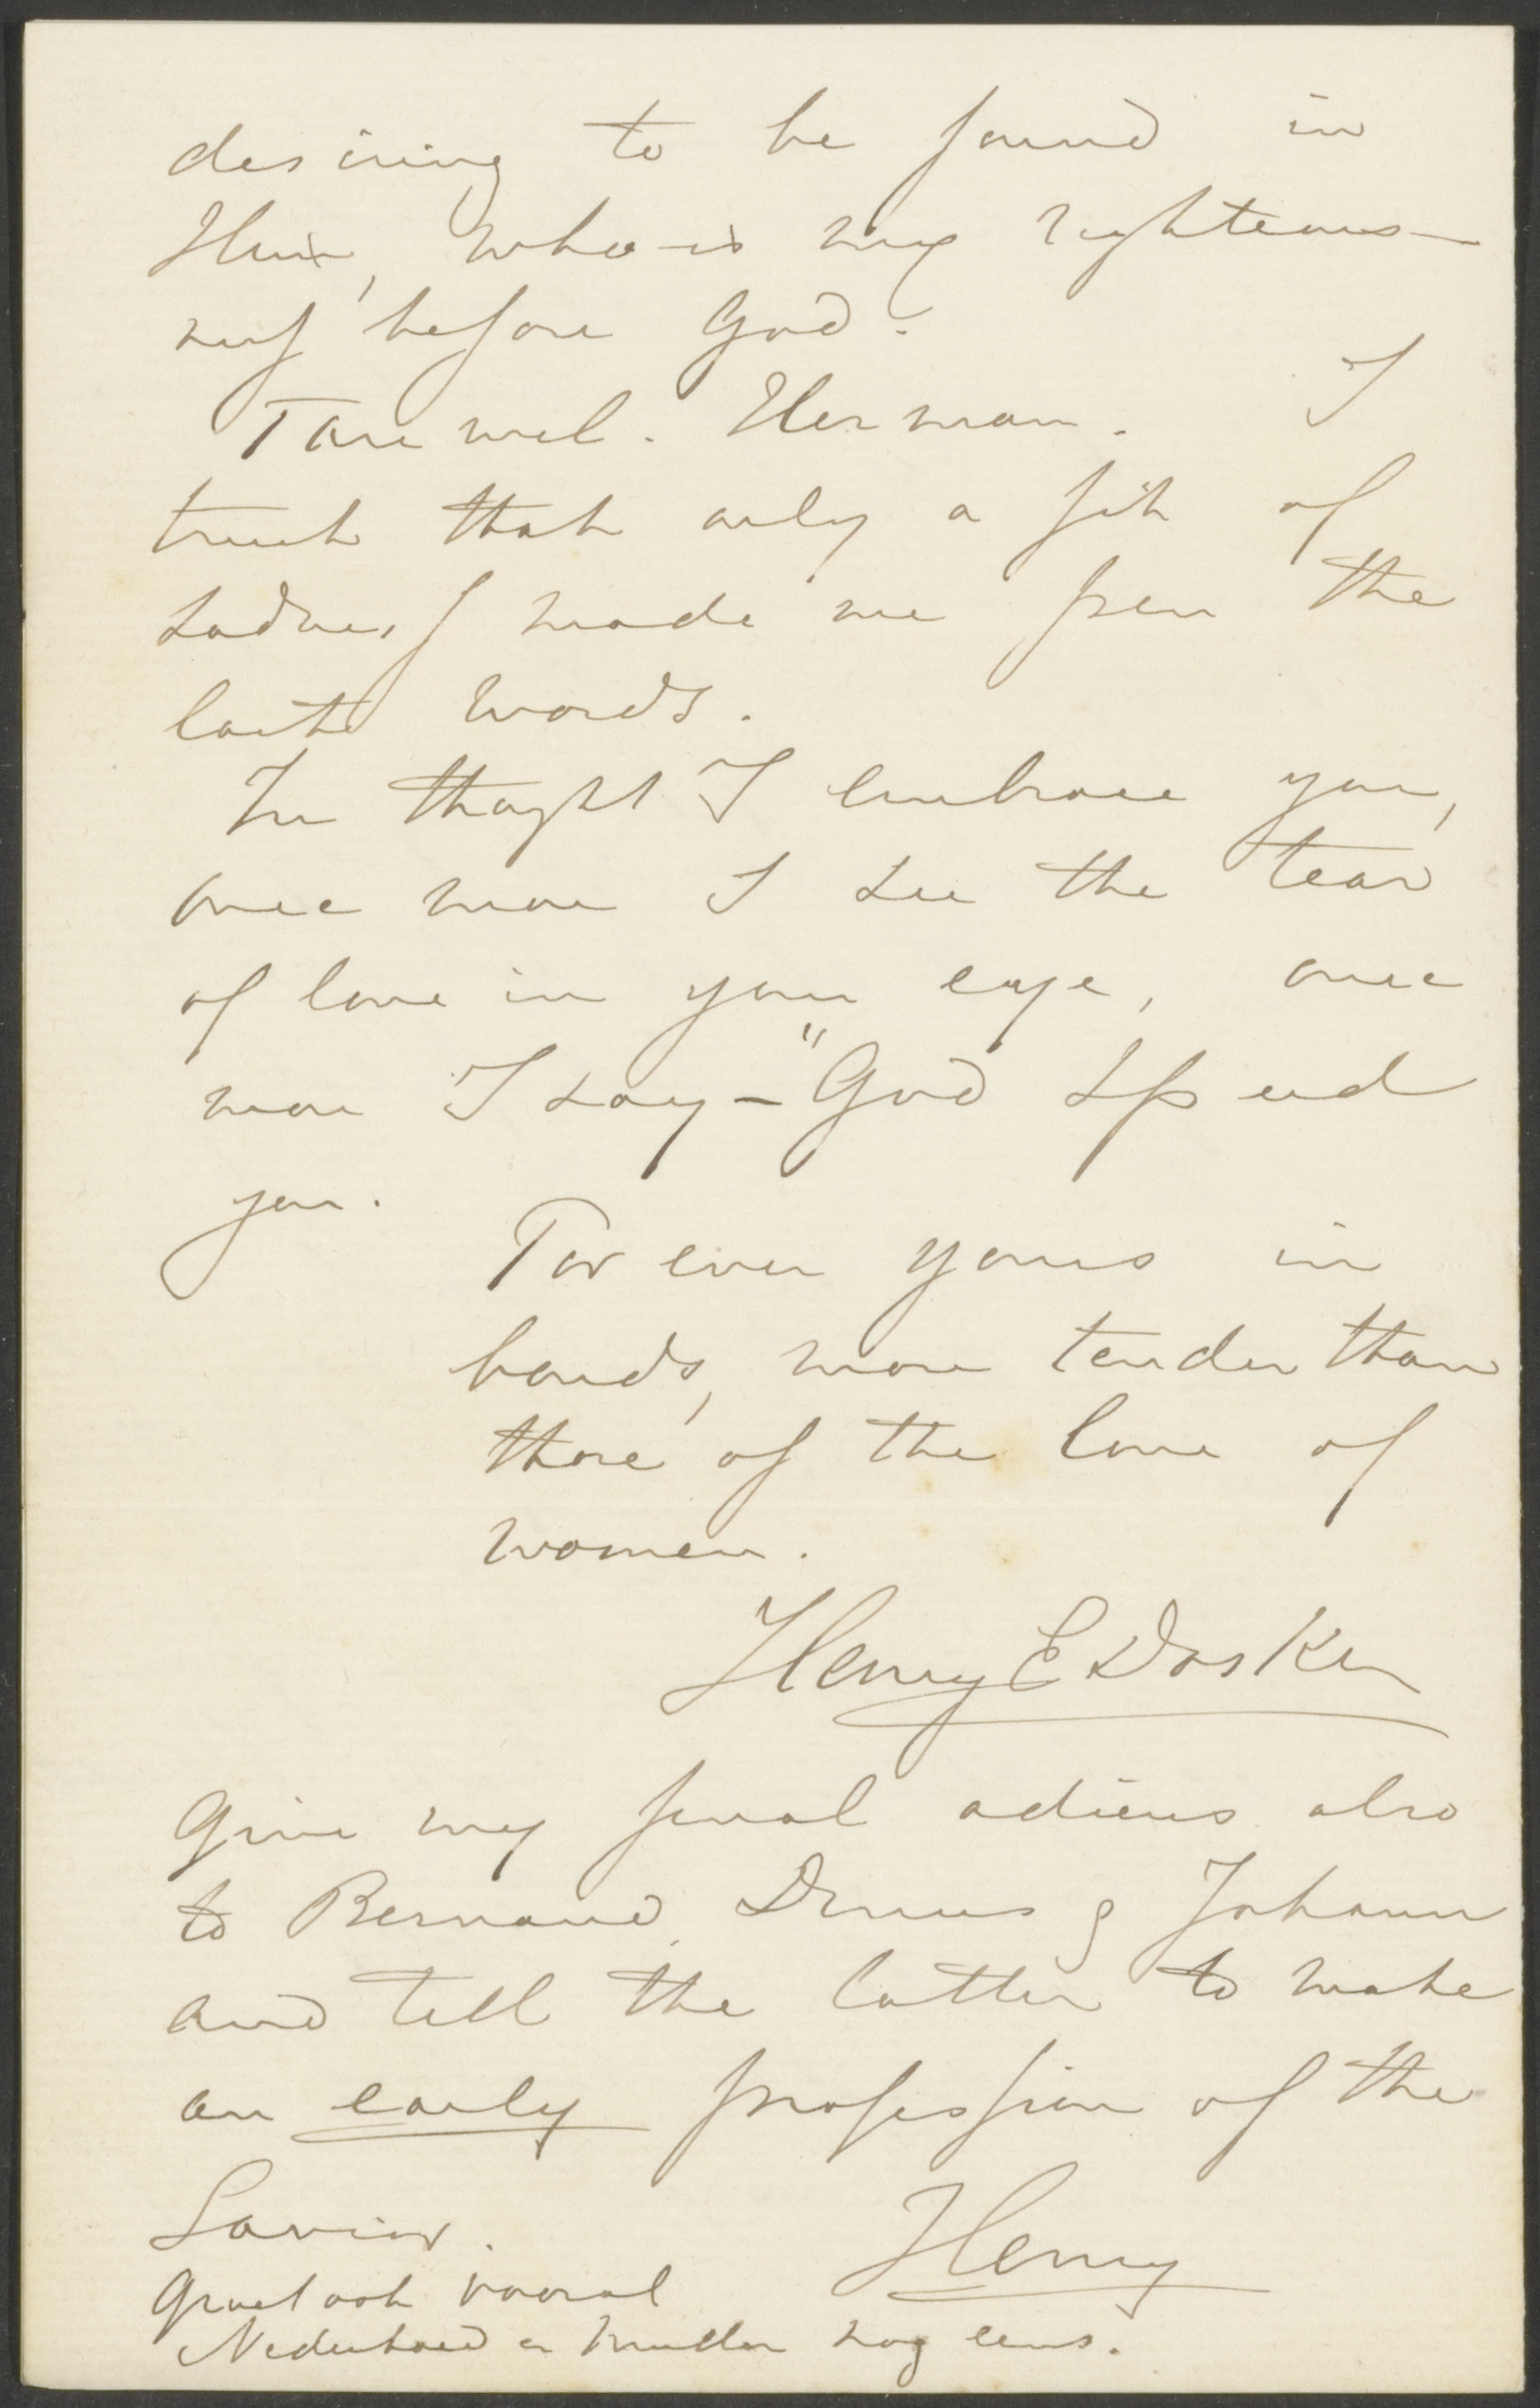 desiring to be found in
Him, who is my righteous-
ness before God.
Farewel. Herman. I
trust that only a fit of
sadness made me pen the
last words.
In thought I embrace you,
once more I see the tear
of love in your eye, once
more I say - "God speed
you.
For ever yours in
bonds, more tender than
those of the love of
women.
Henry E Dosker
Give my final adieus also
to Bernard, Dinus & Johann
and tell the latter to make
an early profession of the
Savior.
Henry
Groet ook vooral
Nederhoed en Mulder nog eens.